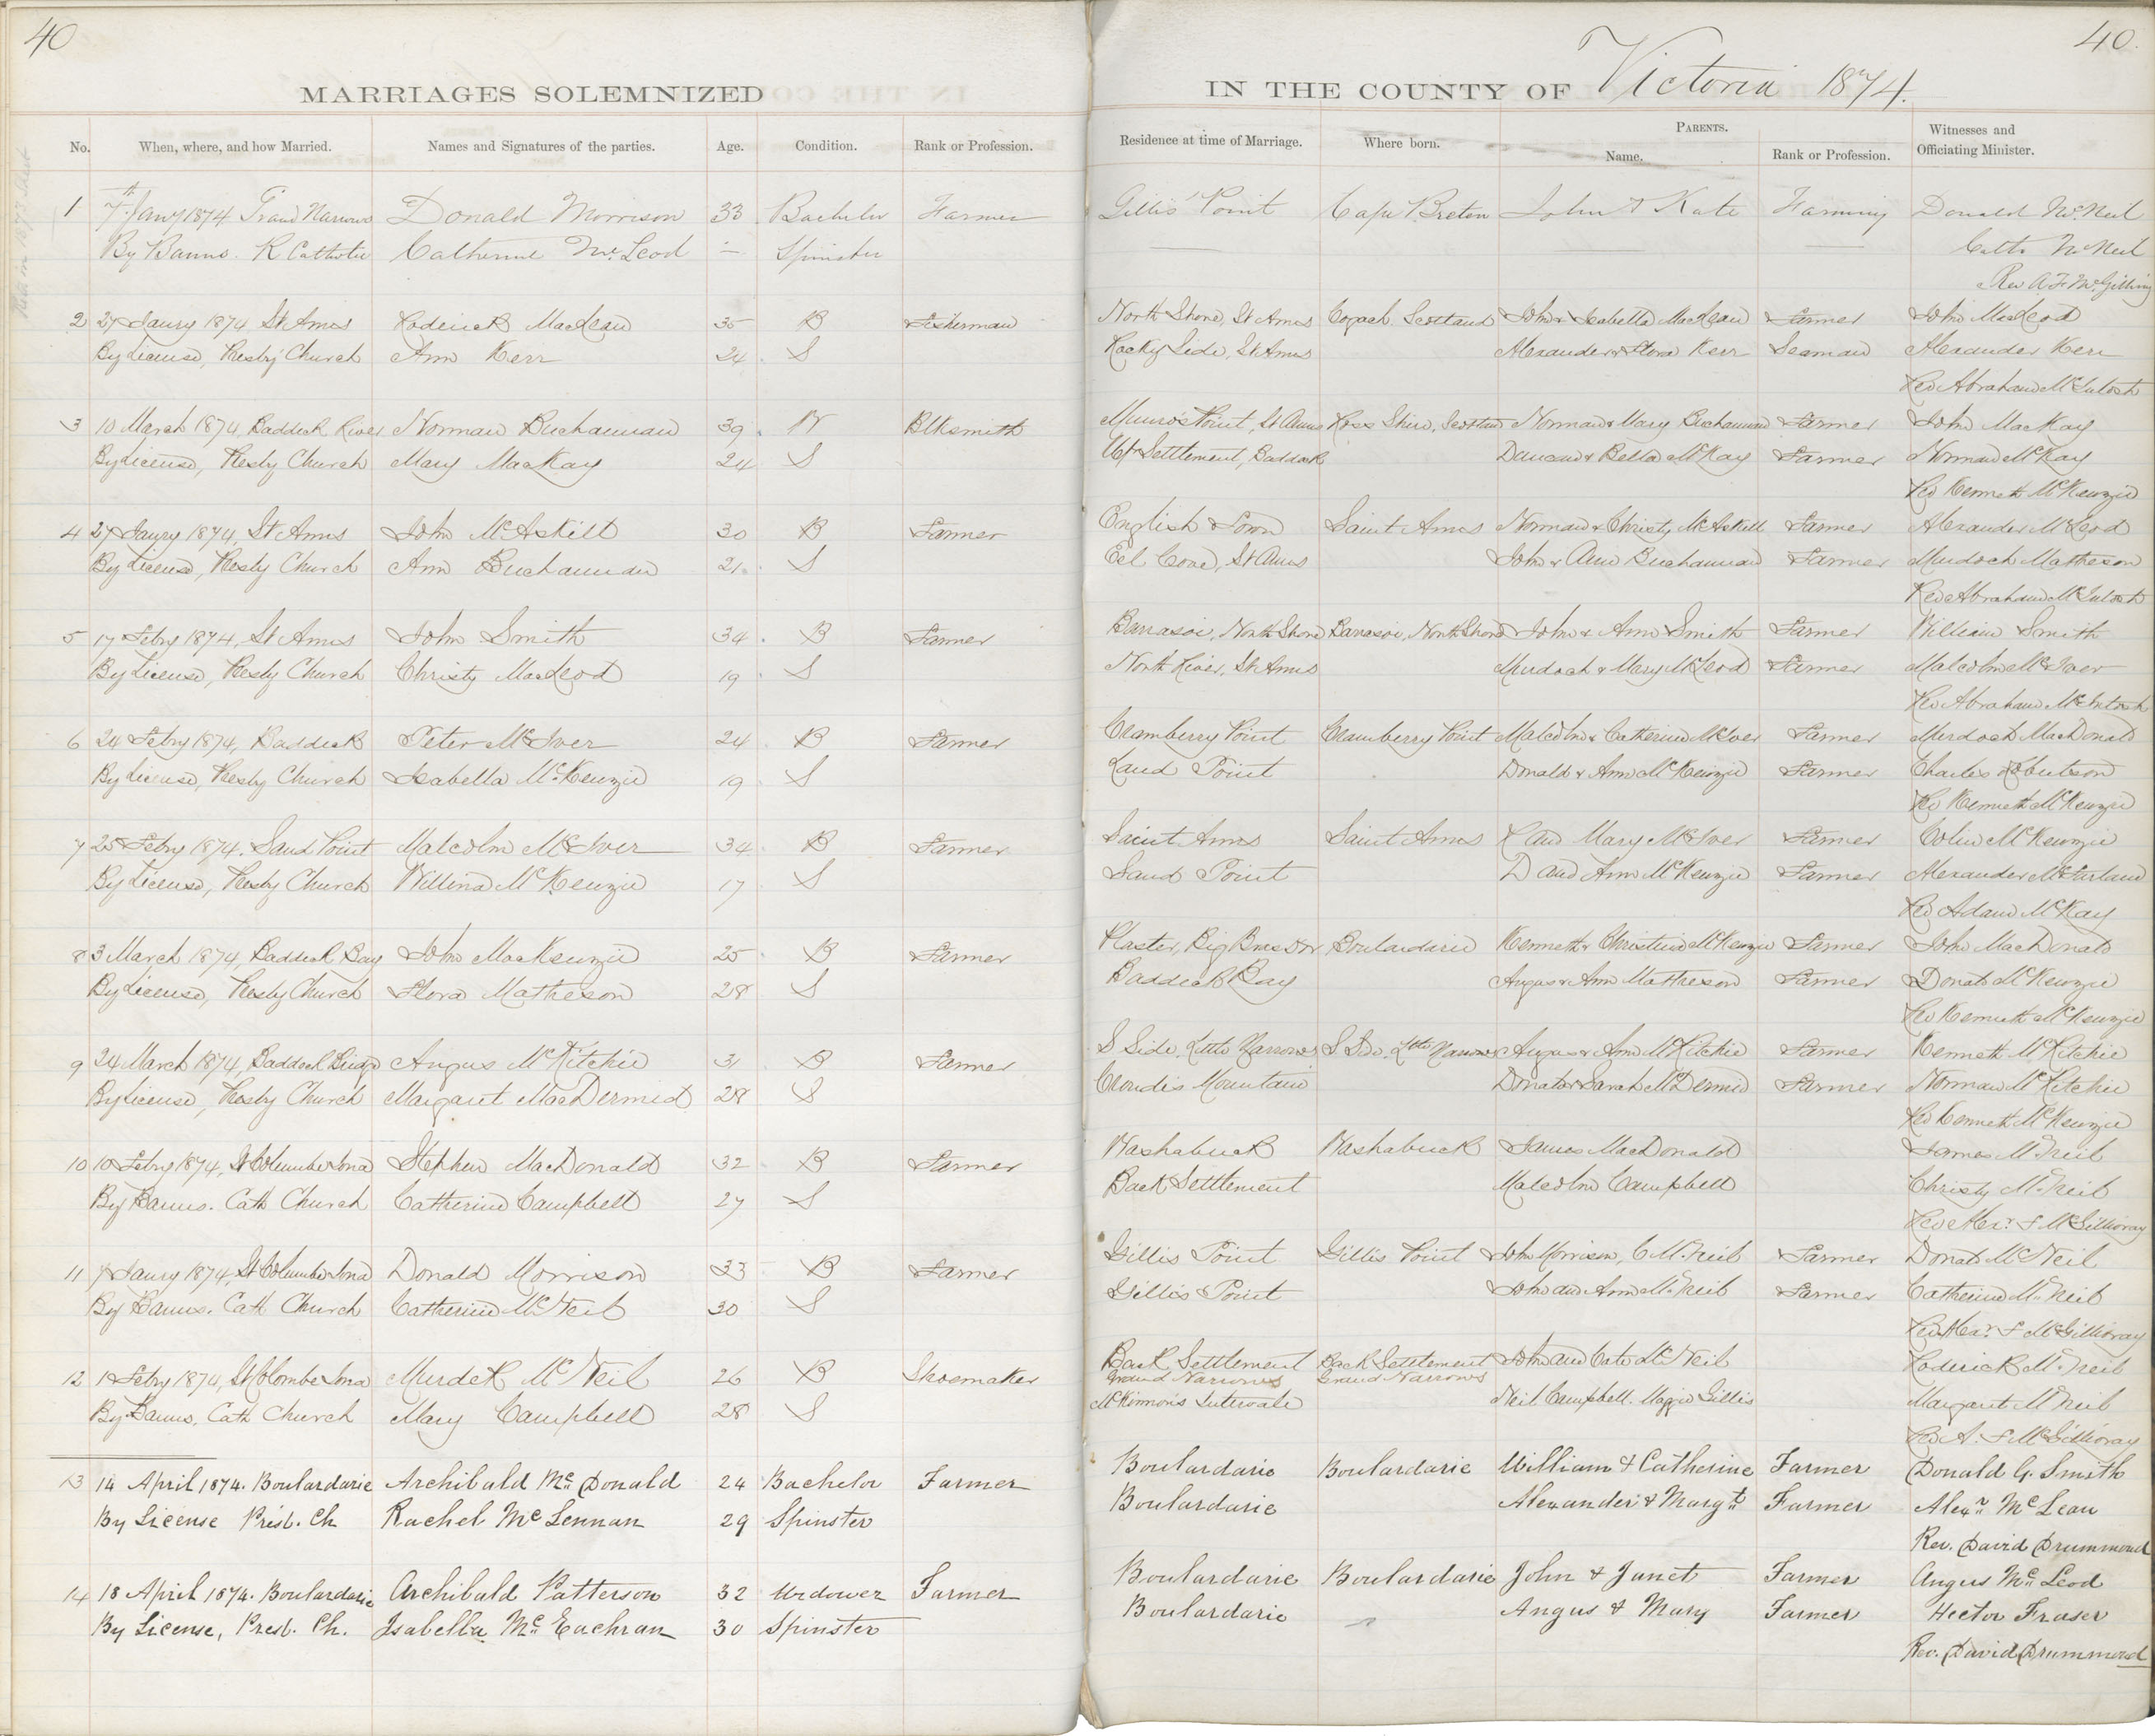 40
MARRIAGES SOLEMNIZED
No. When, where, and how Married. Names and Signatures of the parties. Age. Condition. Rank or Profession.
1 7th Jany 1874 Grand Narrows Donald Morrison 33 Bachelor Farmer
By Banns. R Catholic Catherine McLeod — Spinster
2 27 Jaury 1874 St Anns Roderick MacLean 35 B Fisherman
By License, Presby Church Ann Kerr 24 S
3 10 March 1874, Baddeck River Norman Buchannan 39 W Blksmith
By License, Presby Church Mary MacKay 24 S
4 27 Jaury 1874, St Anns John McAskill 30 B Farmer
By License, Presby Church Ann Buchannan 21 S
5 17 Febry 1874, St Anns John Smith 34 B Farmer
By License, Presby Church Christy MacLeod 19 S
6 24 Febry 1874, Baddeck Peter McIver 24 B Farmer
By License, Presby Church Isabella McKenzie 19 S
7 25 Febry 1874. Sand Point Malcolm McIver 34 B Farmer
By License, Presby Church Willina McKenzie 17 S
8 3 March 1874, Baddeck Bay John MacKenzie 25 B Farmer
By License, Presby Church Flora Matheson 28 S
9 24 March 1874, Baddeck Bridge Angus McRitchie 31 B Farmer
By License, Presby Church Margaret MacDermid 28 S
10 10 Febry 1874, St Columba Iona Stephen MacDonald 32 B Farmer
By Banns. Cath Church Catherine Campbell 27 S
11 7 Jaury 1874, St Columba Iona Donald Morrison 33 B Farmer
By Banns. Cath Church Catherine McNeil 30 S
12 1 Febry 1874, St Colombe Iona Murdck McNeil 26 B Shoemaker
By Banns, Cath Church Mary Campbell 28 S
13 14 April 1874. Boulardarie Archibald McDonald 24 Bachelor Farmer
By License Presb. Ch Rachel McLennan 29 Spinster
14 18 April 1874. Boulardarie Archibald Patterson 32 Widower Farmer
By License, Presb. Ch. Isabella McEachran 30 Spinster
40.
IN THE COUNTY OF Victoria 1874.
Residence at time of Marriage. Where born. PARENTS. Name. Rank or Profession. Witnesses and Officiating Minister.
Gillis' Point Cape Breton John & Kate Farming Donald McNeil
Cath McNeil
Rev A F McGillivry
North Shore, St Anns Cogach Scotland John & Isabella MacLean Farmer John MacLeod
Rocky Side, St Anns Alexander & Flora Kerr Seaman Alexander Kerr
Rev Abraham McIntosh
Munro's Point, St Anns Ross Shire, Scotland Norman & Mary Buchannan Farmer John MacKay
Up Settlement, Baddeck Duncan & Bella McKay Farmer Norman McKay
Rev Kenneth McKenzie
English Town Saint Anns Norman & Christy McAskill Farmer Alexander McLeod
Eel Cove, St Anns John & Ann Buchannan Farmer Murdoch Matheson
Rev Abraham McIntosh
Barrasoi, North Shore Barrasoi, North Shore John & Ann Smith Farmer William Smith
North River, St Anns Murdoch & Mary McLeod Farmer Malcolm McIver
Rev Abraham McIntosh
Cramberry Point Cramberry Point Malcolm & Catherine McIver Farmer Murdoch MacDonald
Sand Point Donald & Ann McKenzie Farmer Charles Robertson
Rev Kenneth McKenzie
Saint Anns Saint Anns R and Mary McIver Farmer Colin McKenzie
Sand Point D and Ann McKenzie Farmer Alexander McFarland
Rev Adam McKay
Plaster, Big Bras Dor Boulardarie Kenneth & Christina McKenzie Farmer John MacDonald
Baddeck Bay Angus & Ann Matheson Farmer Donald McKenzie
Rev Kenneth McKenzie
S Side, Little Narrows S Side, Little Narrows Angus & Ann McRitchie Farmer Kenneth McRitchie
Cloudis Mountain Donald & Sarah McDermid Farmer Norman McRitchie
Rev Kenneth McKenzie
Washabuck Washabuck James MacDonald James McNeil
Back Settlement Malcolm Campbell Christy McNeil
Rev Alexr F McGillivray
Gillis Point Gillis Point John Morrison, C McNeil Farmer Donald McNeil
Gillis Point John and Ann McNeil Farmer Catherine McNeil
Rev Alexr F McGillivray
Back Settlement Back Settlement John and Cate McNeil Roderick McNeil
Grand Narrows Grand Narrows
McKinnon's Intervale Neil Campbell. Maggie Gillis Margaret McNeil
Rev A. F McGillivray
Boulardarie Boulardarie William & Catherine Farmer Donald G. Smith
Boulardarie Alexander & Margt Farmer Alexr McLean
Rev. David Drummond
Boulardarie Boulardarie John & Janet Farmer Angus McLeod
Boulardarie Angus & Mary Farmer Hector Fraser
Rev. David Drummond